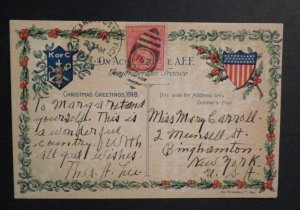 K of C
On Active Service A.E.F.
Somewhere in France
762
CHRISTMAS GREETINGS, 1918.
This side for Address only
Soldier's Mail
To Mary a
yourself. This is
a wonderful
country. With
all good wishes.
Thos. A. Lee
Miss Mary Carroll.
2 Munsell St.
Binghamton
New York.
U. S. A